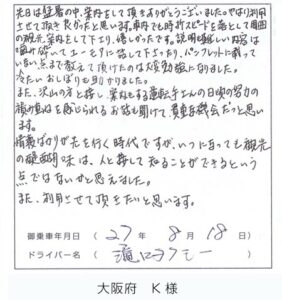 先日は猛暑の中、案内をして頂きありがとうございました。やはり利用
させて頂き良かったと思います。車内でも時折スピードを落として周囲
の観光、案内をして下さり嬉しかったです。説明難しい内容は
噛み砕いてユーモアに話して下さったり、パンフレットに載って
いない点まで教えて頂けたのは大変勉強になりました。
冷たいおしぼりも助かりました。
また、沢山の方と接し、案内をする運転手さんの日頃の努力の
積み重ねを感じられるお話も聞けて、貴重な機会だったと思い
ます。
情報ばかりが先を行く時代ですが、いつになっても観光
の醍醐味は、人と接して知ることができるという
点ではないかと思えました。
また、利用させて頂きたいと思います。
御乗車年月日 ( 27年 8月 18日 )
ドライバー名 (
大阪府 K様